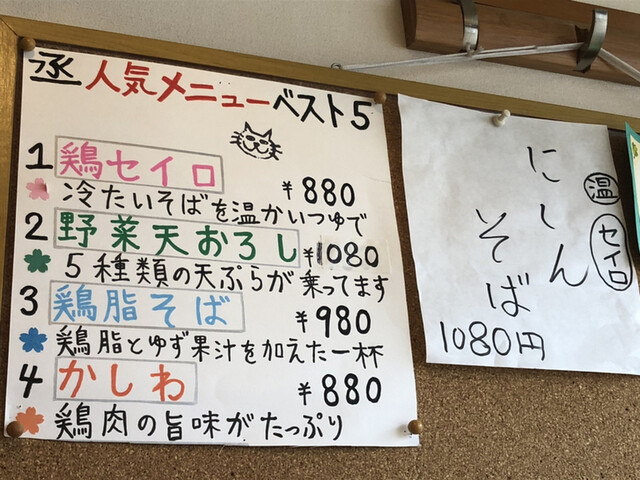 丞 人気メニューベスト5
1 鶏セイロ ¥880
冷たいそばを温かいつゆで
2 野菜天おろし ¥1080
5種類の天ぷらが乗ってます
3 鶏脂そば ¥980
鶏脂とゆず果汁を加えた一杯
4 かしわ ¥880
鶏肉の旨味がたっぷり
温 セイロ
にしん
そば
1080円